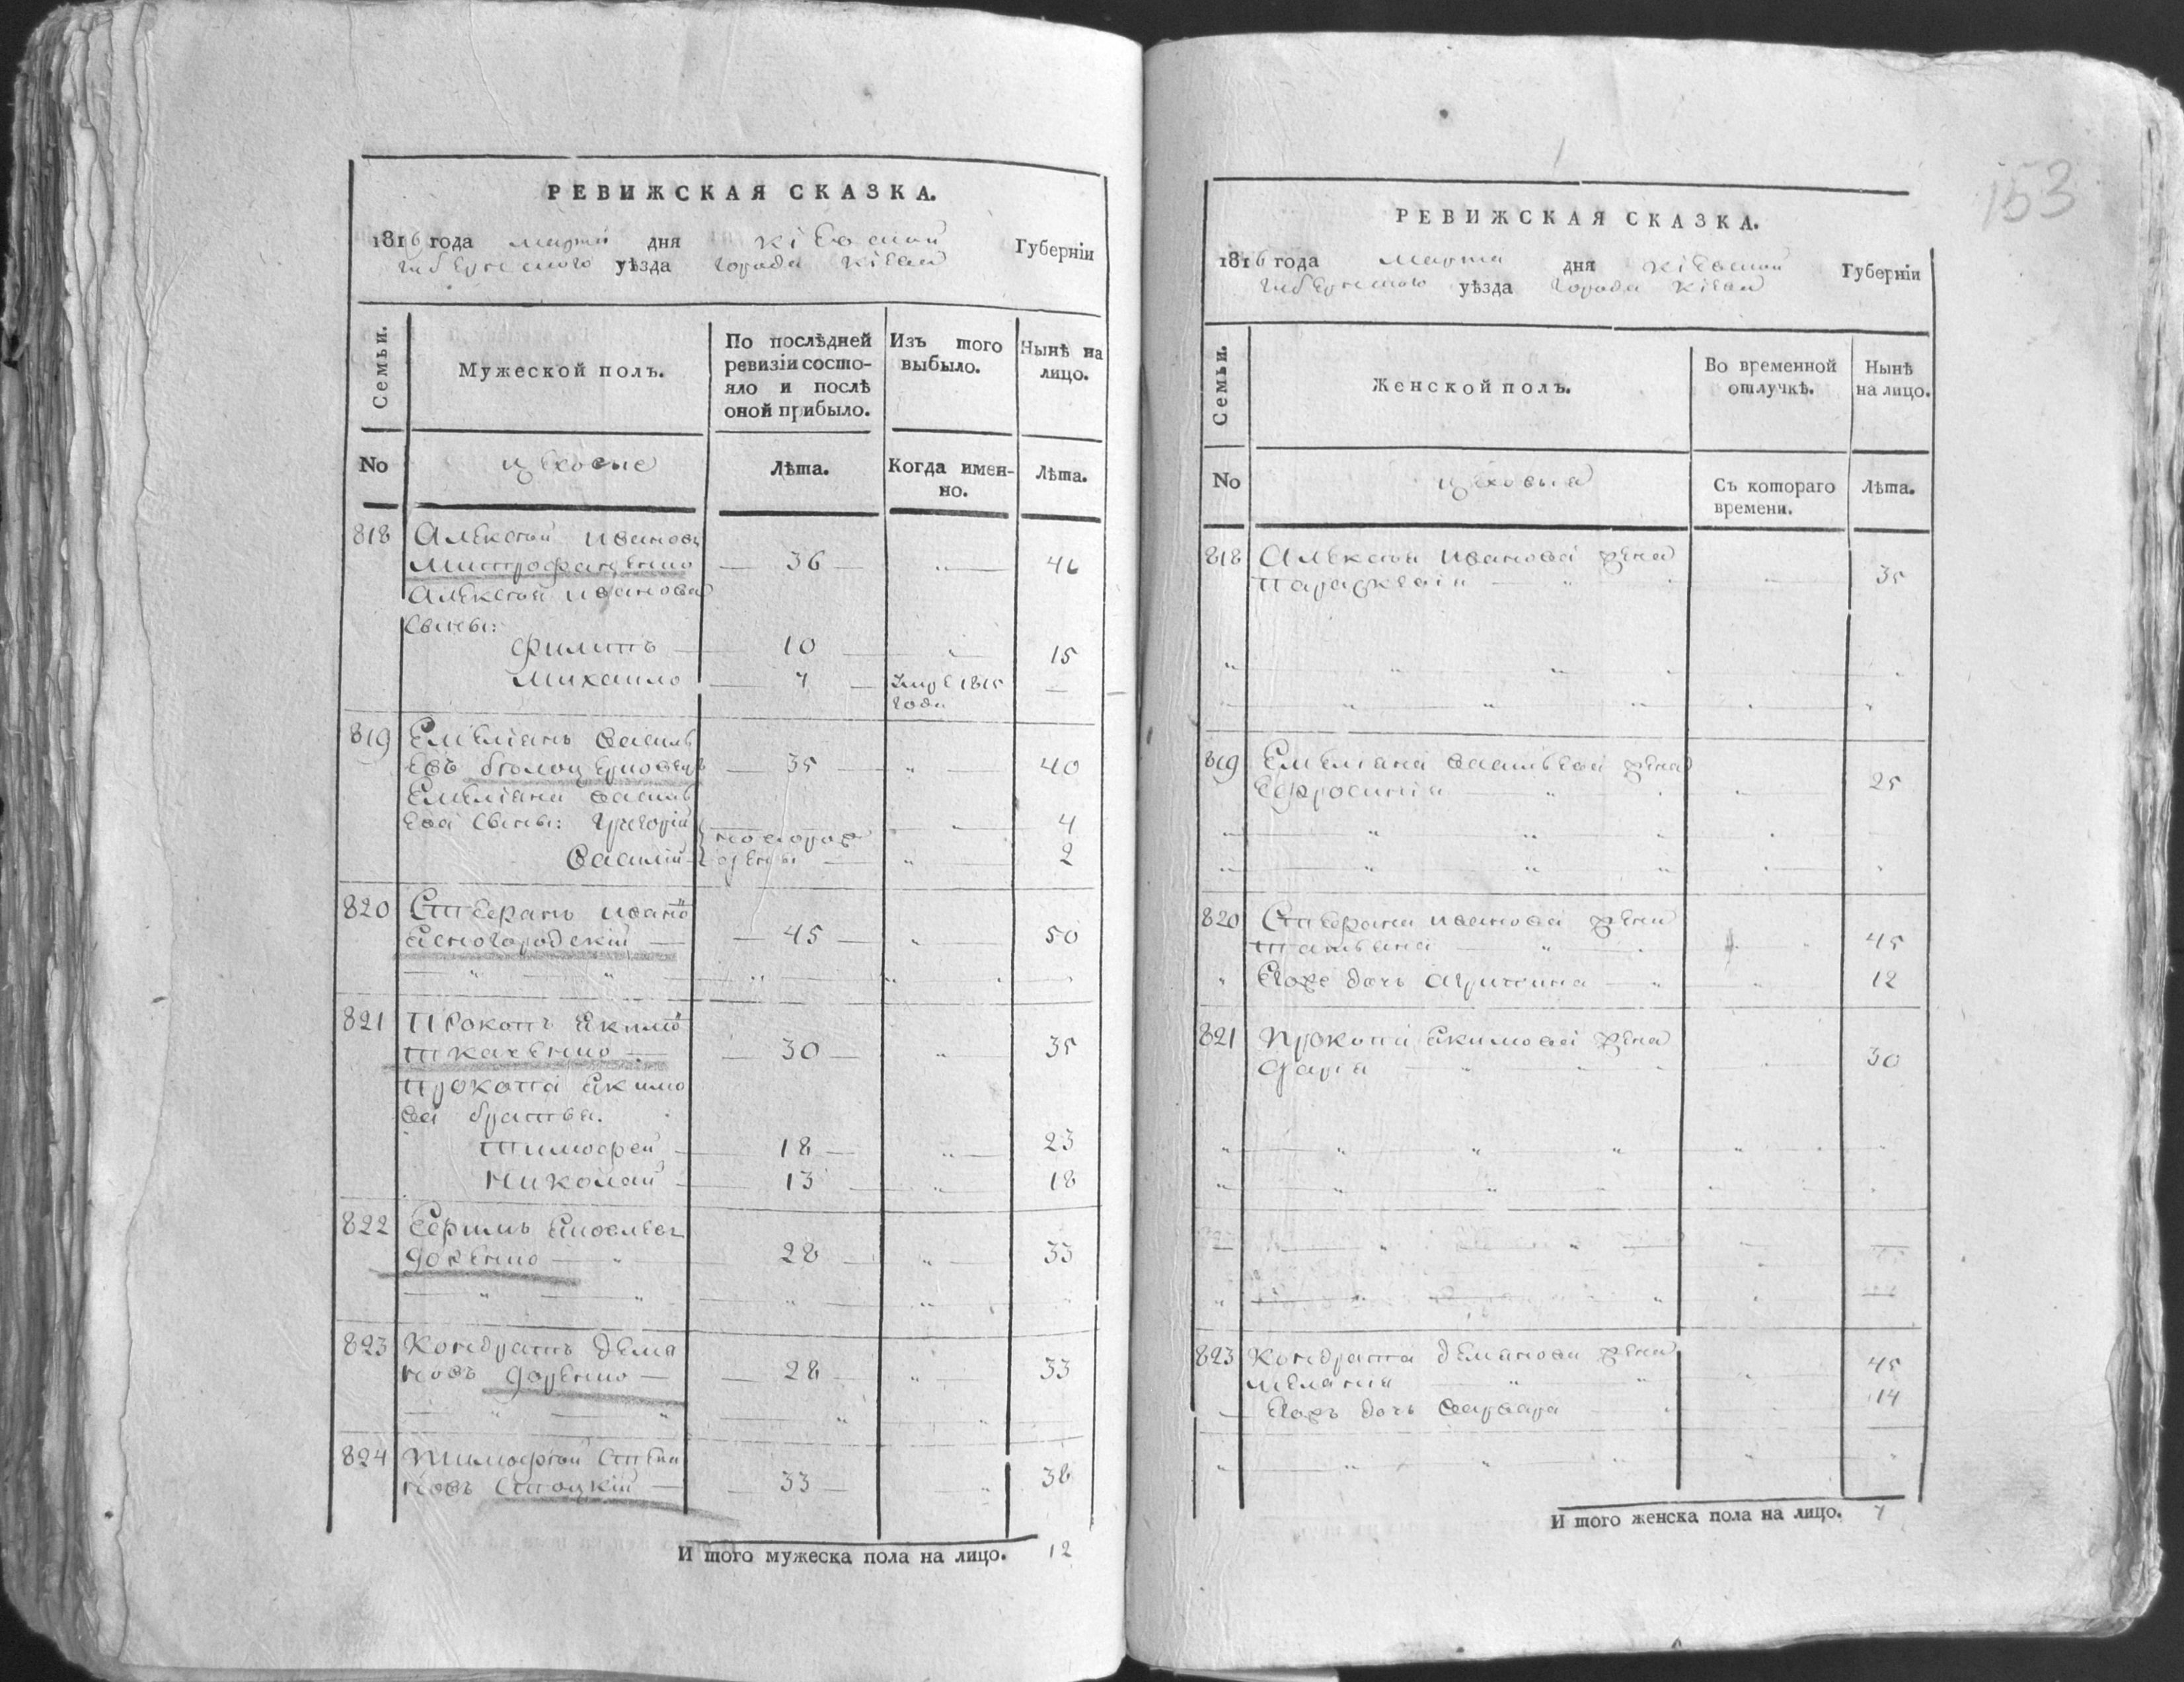 РЕВИЖСКАЯ СКАЗКА.
1816 года марта дня Кіевской Губерніи
губернского уѣзда города Кіева
Семьи.
Мужеской полъ.
По послѣдней ревизіи состояло и послѣ оной прибыло.
Изъ того выбыло.
Нынѣ на лицо.
No
цеховые
Лѣта.
Когда именно.
Лѣта.
818 Алексѣй Ивановъ
Митрофаненко — 36 — 〃 —
Алексѣя Иванова
сыны:
Филипъ — 10 — 〃 15
Михайло — 7 — 1815
года
819 Емеліанъ Василь
евъ — 35 — 〃 — 40
Емеліана Василь
ева сыны: Григорій 〃 4
Василій новорож
дены — 〃 — 2
820 Стефанъ Ивано
Ясногородскій — 45 — 〃 50
821 Прокопъ Якимо
Ткаченко — 30 — 〃 35
Прокопа Якимо
ва братья.
Тимофей — 18 — 〃 23
Николай — 13 — 〃 18
822 Ефимъ
— 28 — 〃 33
823 Кондратъ Демя
новъ — 28 — 〃 33
824 Тимофѣй Степа
новъ — 33 — 〃 38
И того мужеска пола на лицо. 12
153
РЕВИЖСКАЯ СКАЗКА.
1816 года марта дня Кіевской Губерніи
губернского уѣзда города Кіева
Семьи.
Женской полъ.
Во временной отлучкѣ.
Нынѣ на лицо.
No
цеховыя
Съ котораго времени.
Лѣта.
818 Алексѣя Иванова жена
Параскевія — 〃 35
819 Емеліана Васильева жена
Ефросинія — 〃 25
820 Стефана Иванова жена
Татьяна — 〃 45
Ево же дочь Агрипина — 〃 12
821 Прокопа Якимова жена
Дарія — 〃 30
823 Кондрата Демянова жена
Меланія — 〃 45
дочь Варвара 14
И того женска пола на лицо. 7